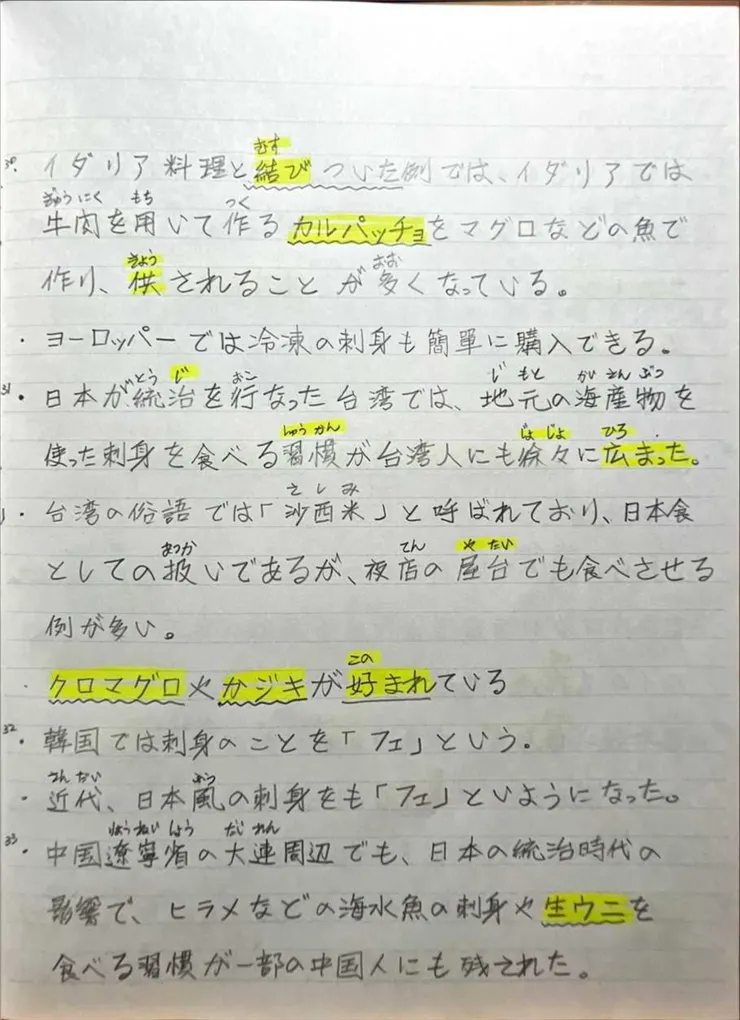 30. イダリア料理と結びついた例では、イダリアでは
むす
牛肉を用いて作るカルパッチョをマグロなどの魚で
ぎゅうにく もち つく
作り、供されることが多くなっている。
きょう おお
・ヨーロッパーでは冷凍の刺身も簡単に購入できる。
31・日本が統治を行なった台湾では、地元の海産物を
とう じ おこ じ もと かい さん ぶつ
使った刺身を食べる習慣が台湾人にも徐々に広まった。
しゅう かん じょ じょ ひろ
・台湾の俗語では「沙西米」と呼ばれており、日本食
さ し み
としての扱いであるが、夜店の屋台でも食べさせる
あつか てん や たい
例が多い。
・クロマグロやカジキが好まれている
この
32・韓国では刺身のことを「フェ」という.
・近代、日本風の刺身をも「フェ」といようになった。
きん だい ふう
33・中国遼寧省の大連周辺でも、日本の統治時代の
りょうねい しょう だい れん
影響で、ヒラメなどの海水魚の刺身や生ウニを
食べる習慣が一部の中国人にも残された。